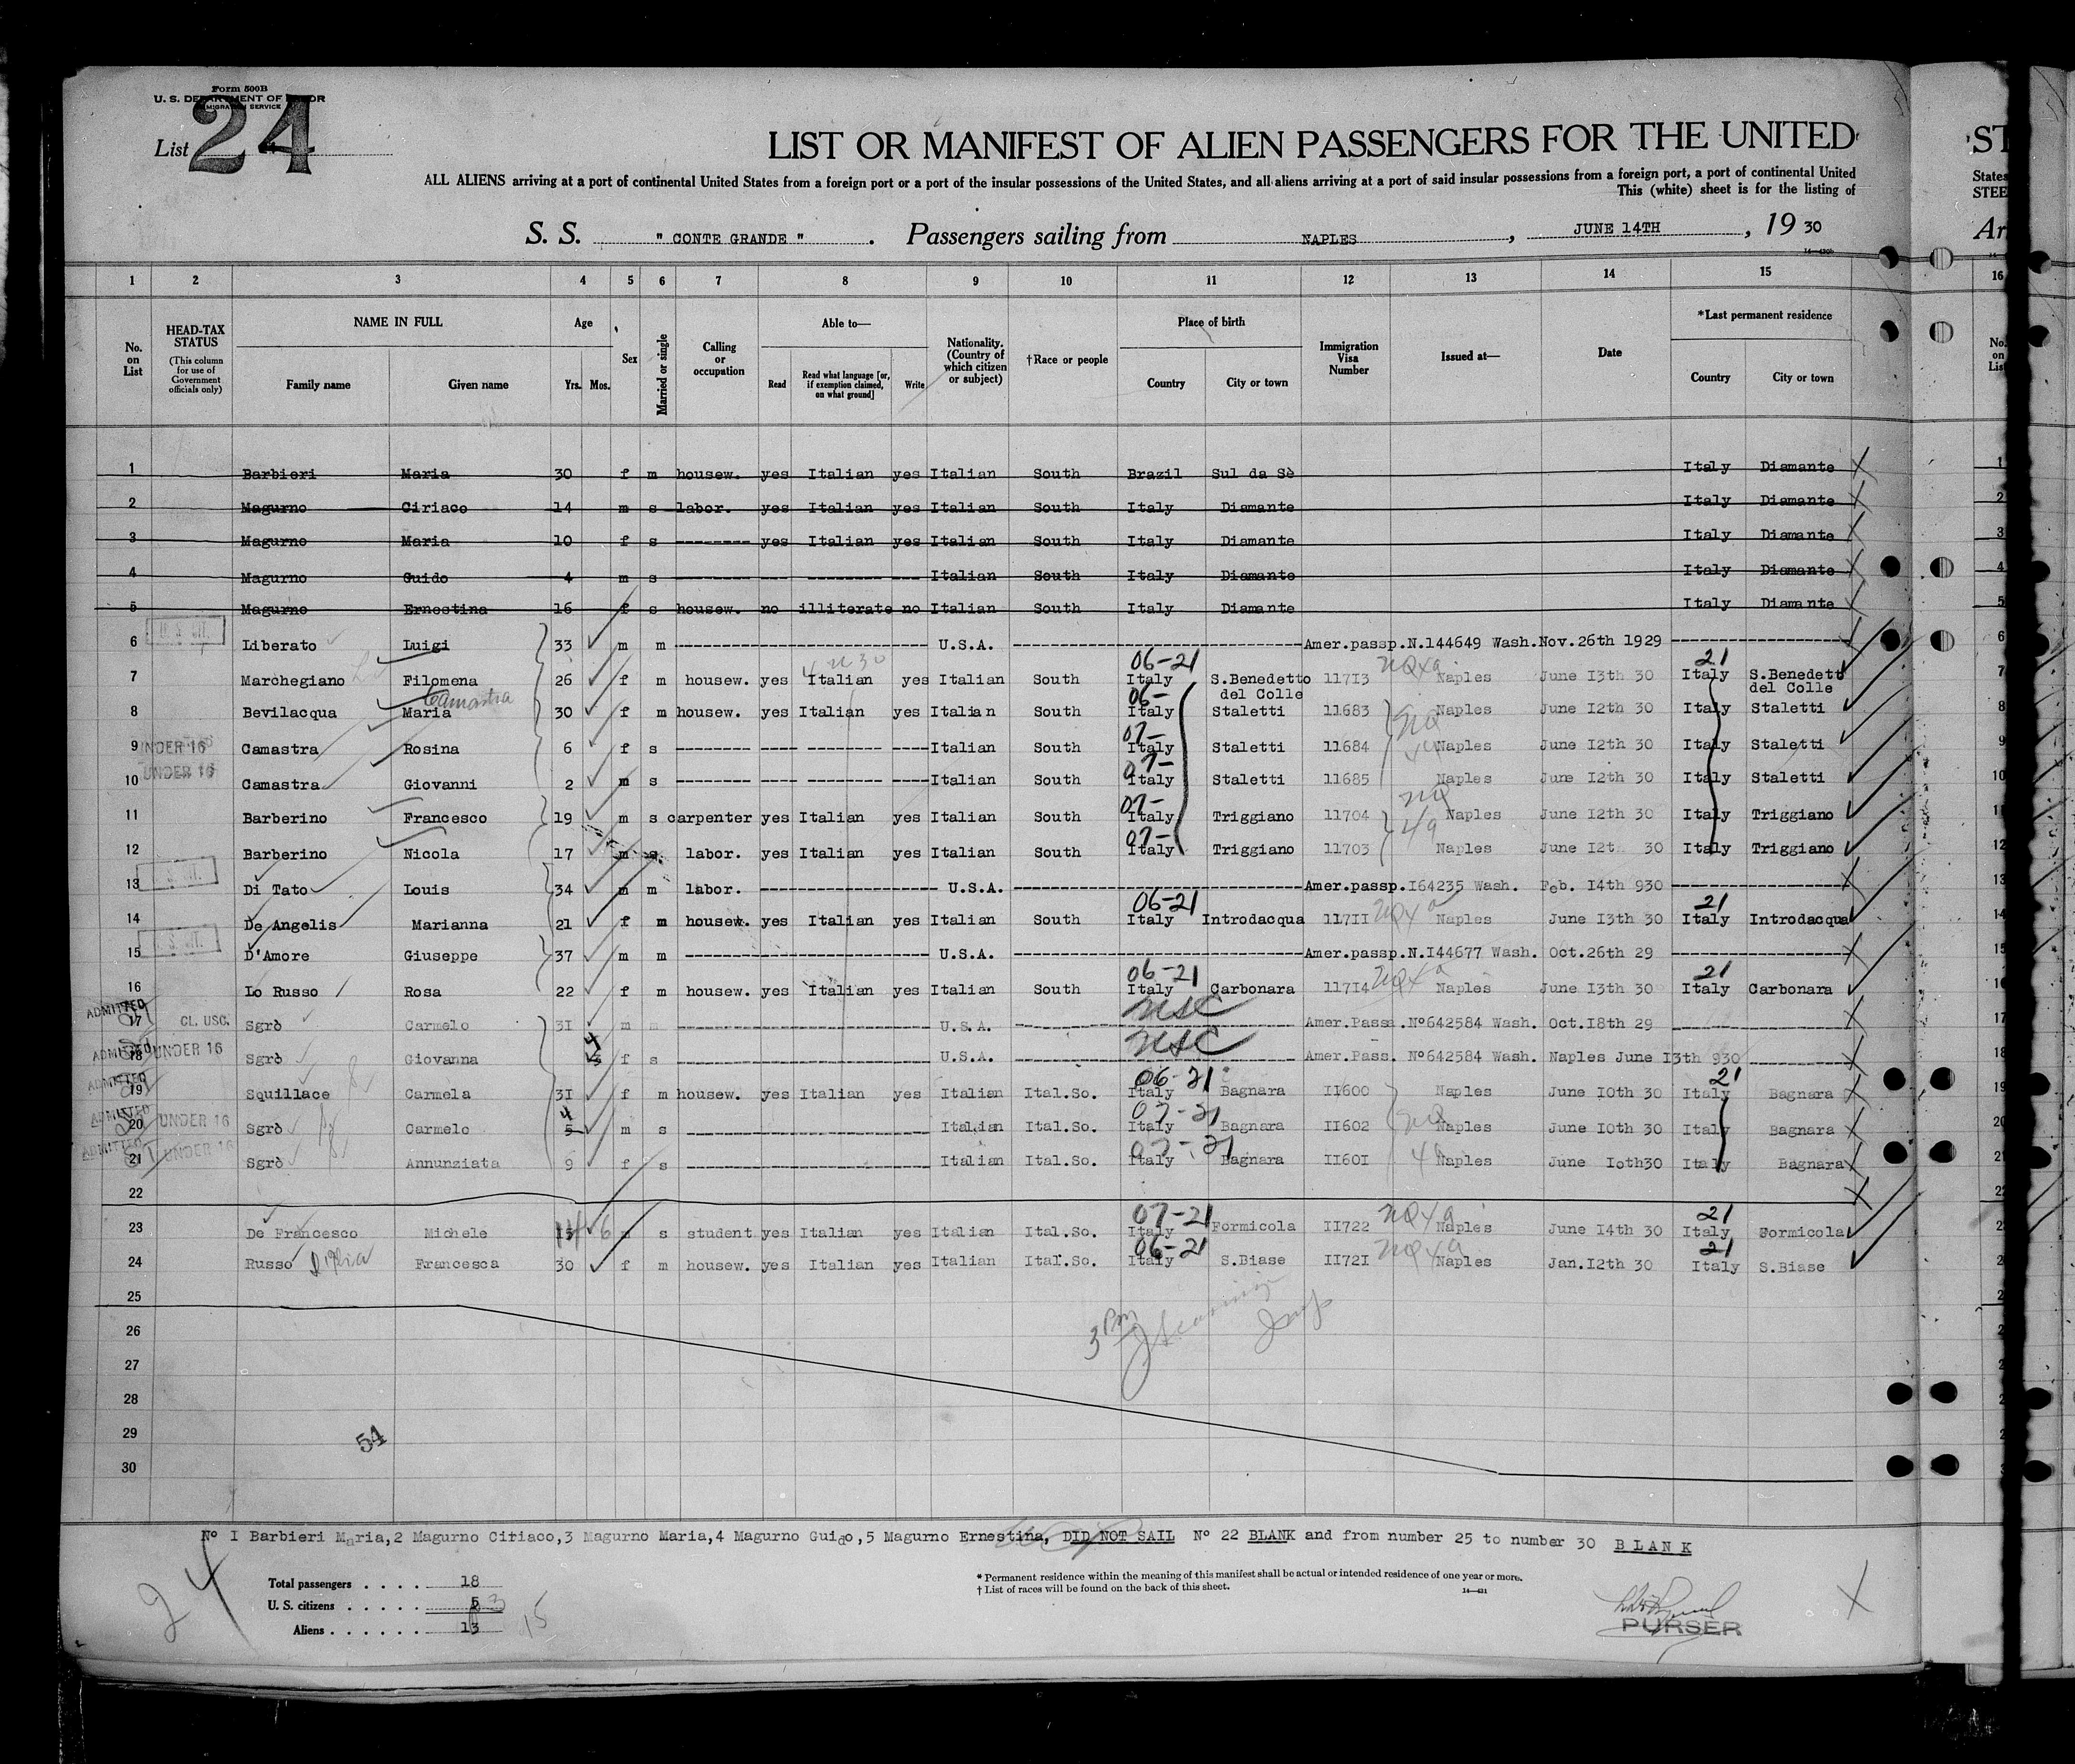 Form 500B
U. S. DEPARTMENT OF LABOR
IMMIGRATION SERVICE
List 24
LIST OR MANIFEST OF ALIEN PASSENGERS FOR THE UNITED
ALL ALIENS arriving at a port of continental United States from a foreign port or a port of the insular possessions of the United States, and all aliens arriving at a port of said insular possessions from a foreign port, a port of continental United
This (white) sheet is for the listing of
S. S. " CONTE GRANDE " . Passengers sailing from NAPLES , JUNE 14TH , 19 30
1 2 3 4 5 6 7 8 9 10 11 12 13 14 15
No. on List
HEAD-TAX STATUS (This column for use of Government officials only)
NAME IN FULL Family name Given name
Age Yrs. Mos.
Sex
Married or single
Calling or occupation
Able to— Read Read what language [or, if exemption claimed, on what ground] Write
Nationality. (Country of which citizen or subject)
†Race or people
Place of birth Country City or town
Immigration Visa Number
Issued at—
Date
*Last permanent residence Country City or town
1 Barbieri Maria 30 f m housew. yes Italian yes Italian South Brazil Sul da Sè Italy Diamante
2 Magurno Ciriaco 14 m s labor. yes Italian yes Italian South Italy Diamante Italy Diamante
3 Magurno Maria 10 f s -------- yes Italian yes Italian South Italy Diamante Italy Diamante
4 Magurno Guido 4 m s -------- --- -------- ---- Italian South Italy Diamante Italy Diamante
5 Magurno Ernestina 16 f s housew. no illiterate no Italian South Italy Diamante Italy Diamante
6 Liberato Luigi 33 m m -------- U.S.A. -------- Amer.passp.N.144649 Wash.Nov.26th 1929 --------
06-21 21
7 Marchegiano Filomena 26 f m housew. yes Italian yes Italian South Italy S.Benedetto del Colle 11713 Naples June 13th 30 Italy S.Benedett del Colle
Camastra 06-
8 Bevilacqua Maria 30 f m housew. yes Italian yes Italian South Italy Staletti 11683 Naples June 12th 30 Italy Staletti
UNDER 16 07-
9 Camastra Rosina 6 f s -------- ---- -------- ---- Italian South Italy Staletti 11684 Naples June 12th 30 Italy Staletti
UNDER 16 07-
10 Camastra Giovanni 2 m s -------- ---- -------- ---- Italian South Italy Staletti 11685 Naples June 12th 30 Italy Staletti
07-
11 Barberino Francesco 19 m s carpenter yes Italian yes Italian South Italy Triggiano 11704 Naples June 12th 30 Italy Triggiano
07-
12 Barberino Nicola 17 m s labor. yes Italian yes Italian South Italy Triggiano 11703 Naples June 12t 30 Italy Triggiano
13 Di Tato Louis 34 m m labor. -------- U.S.A. -------- Amer.passp.164235 Wash. Feb. 14th 930 --------
06-21 21
14 De Angelis Marianna 21 f m housew. yes Italian yes Italian South Italy Introdacqua 11711 Naples June 13th 30 Italy Introdacqua
15 D'Amore Giuseppe 37 m m -------- U.S.A. -------- Amer.passp.N.144677 Wash. Oct.26th 29 --------
06-21 21
16 Lo Russo Rosa 22 f m housew. yes Italian yes Italian South Italy Carbonara 11714 Naples June 13th 30 Italy Carbonara
ADMITTED CL. USC. USC
17 Sgrò Carmelo 31 m m -------- U.S.A. -------- Amer.Pass. Nº642584 Wash. Oct.18th 29 --------
ADMITTED UNDER 16 USC
18 Sgrò Giovanna 4 f s -------- U.S.A. -------- Amer.Pass. Nº642584 Wash. Naples June 13th 930 --------
ADMITTED 06-21 21
19 Squillace Carmela 31 f m housew. yes Italian yes Italian Ital.So. Italy Bagnara 11600 Naples June 10th 30 Italy Bagnara
ADMITTED UNDER 16 4 07-21
20 Sgrò Carmelo 5 m s -------- Italian Ital.So. Italy Bagnara 11602 Naples June 10th 30 Italy Bagnara
ADMITTED UNDER 16 07-21
21 Sgrò Annunziata 9 f s -------- Italian Ital.So. Italy Bagnara 11601 Naples June 10th30 Italy Bagnara
22
07-21 21
23 De Francesco Michele 14 6 s student yes Italian yes Italian Ital.So. Italy Formicola 11722 Naples June 14th 30 Italy Formicola
06-21 21
24 Russo Francesca 30 f m housew. yes Italian yes Italian Ital.So. Italy S.Biase 11721 Naples Jan.12th 30 Italy S.Biase
25
26
27
28
29
30
3 PM
54
Nº I Barbieri Maria,2 Magurno Citiaco,3 Magurno Maria,4 Magurno Guido,5 Magurno Ernestina, DID NOT SAIL Nº 22 BLANK and from number 25 to number 30 B L A N K
24
Total passengers . . . . 18
U. S. citizens . . . . . 5 3
Aliens . . . . . . 13 15
* Permanent residence within the meaning of this manifest shall be actual or intended residence of one year or more.
† List of races will be found on the back of this sheet.
14—431
PURSER
ST
States
STEE
Ar
16
No. on List